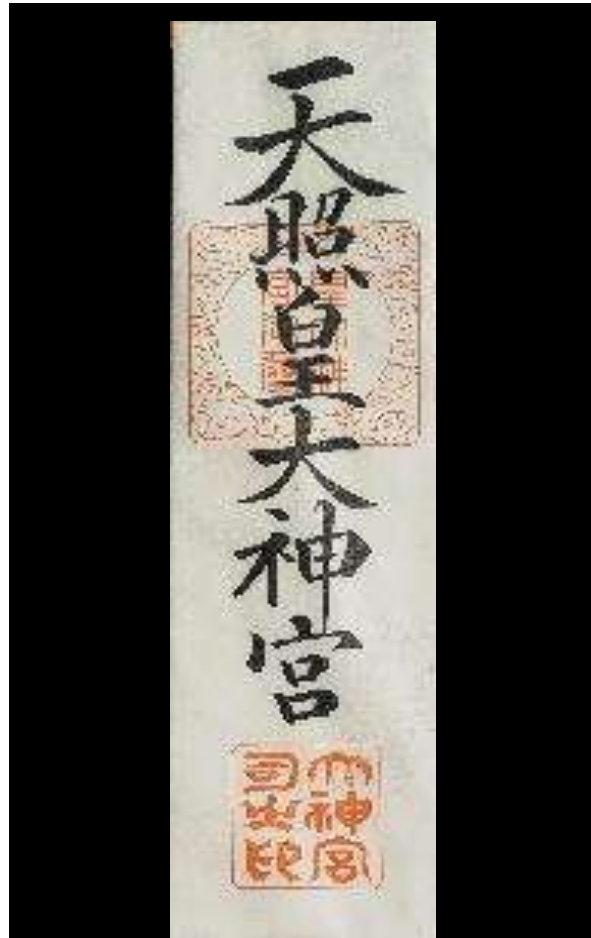 天照皇大神宮
大神宮
司之印